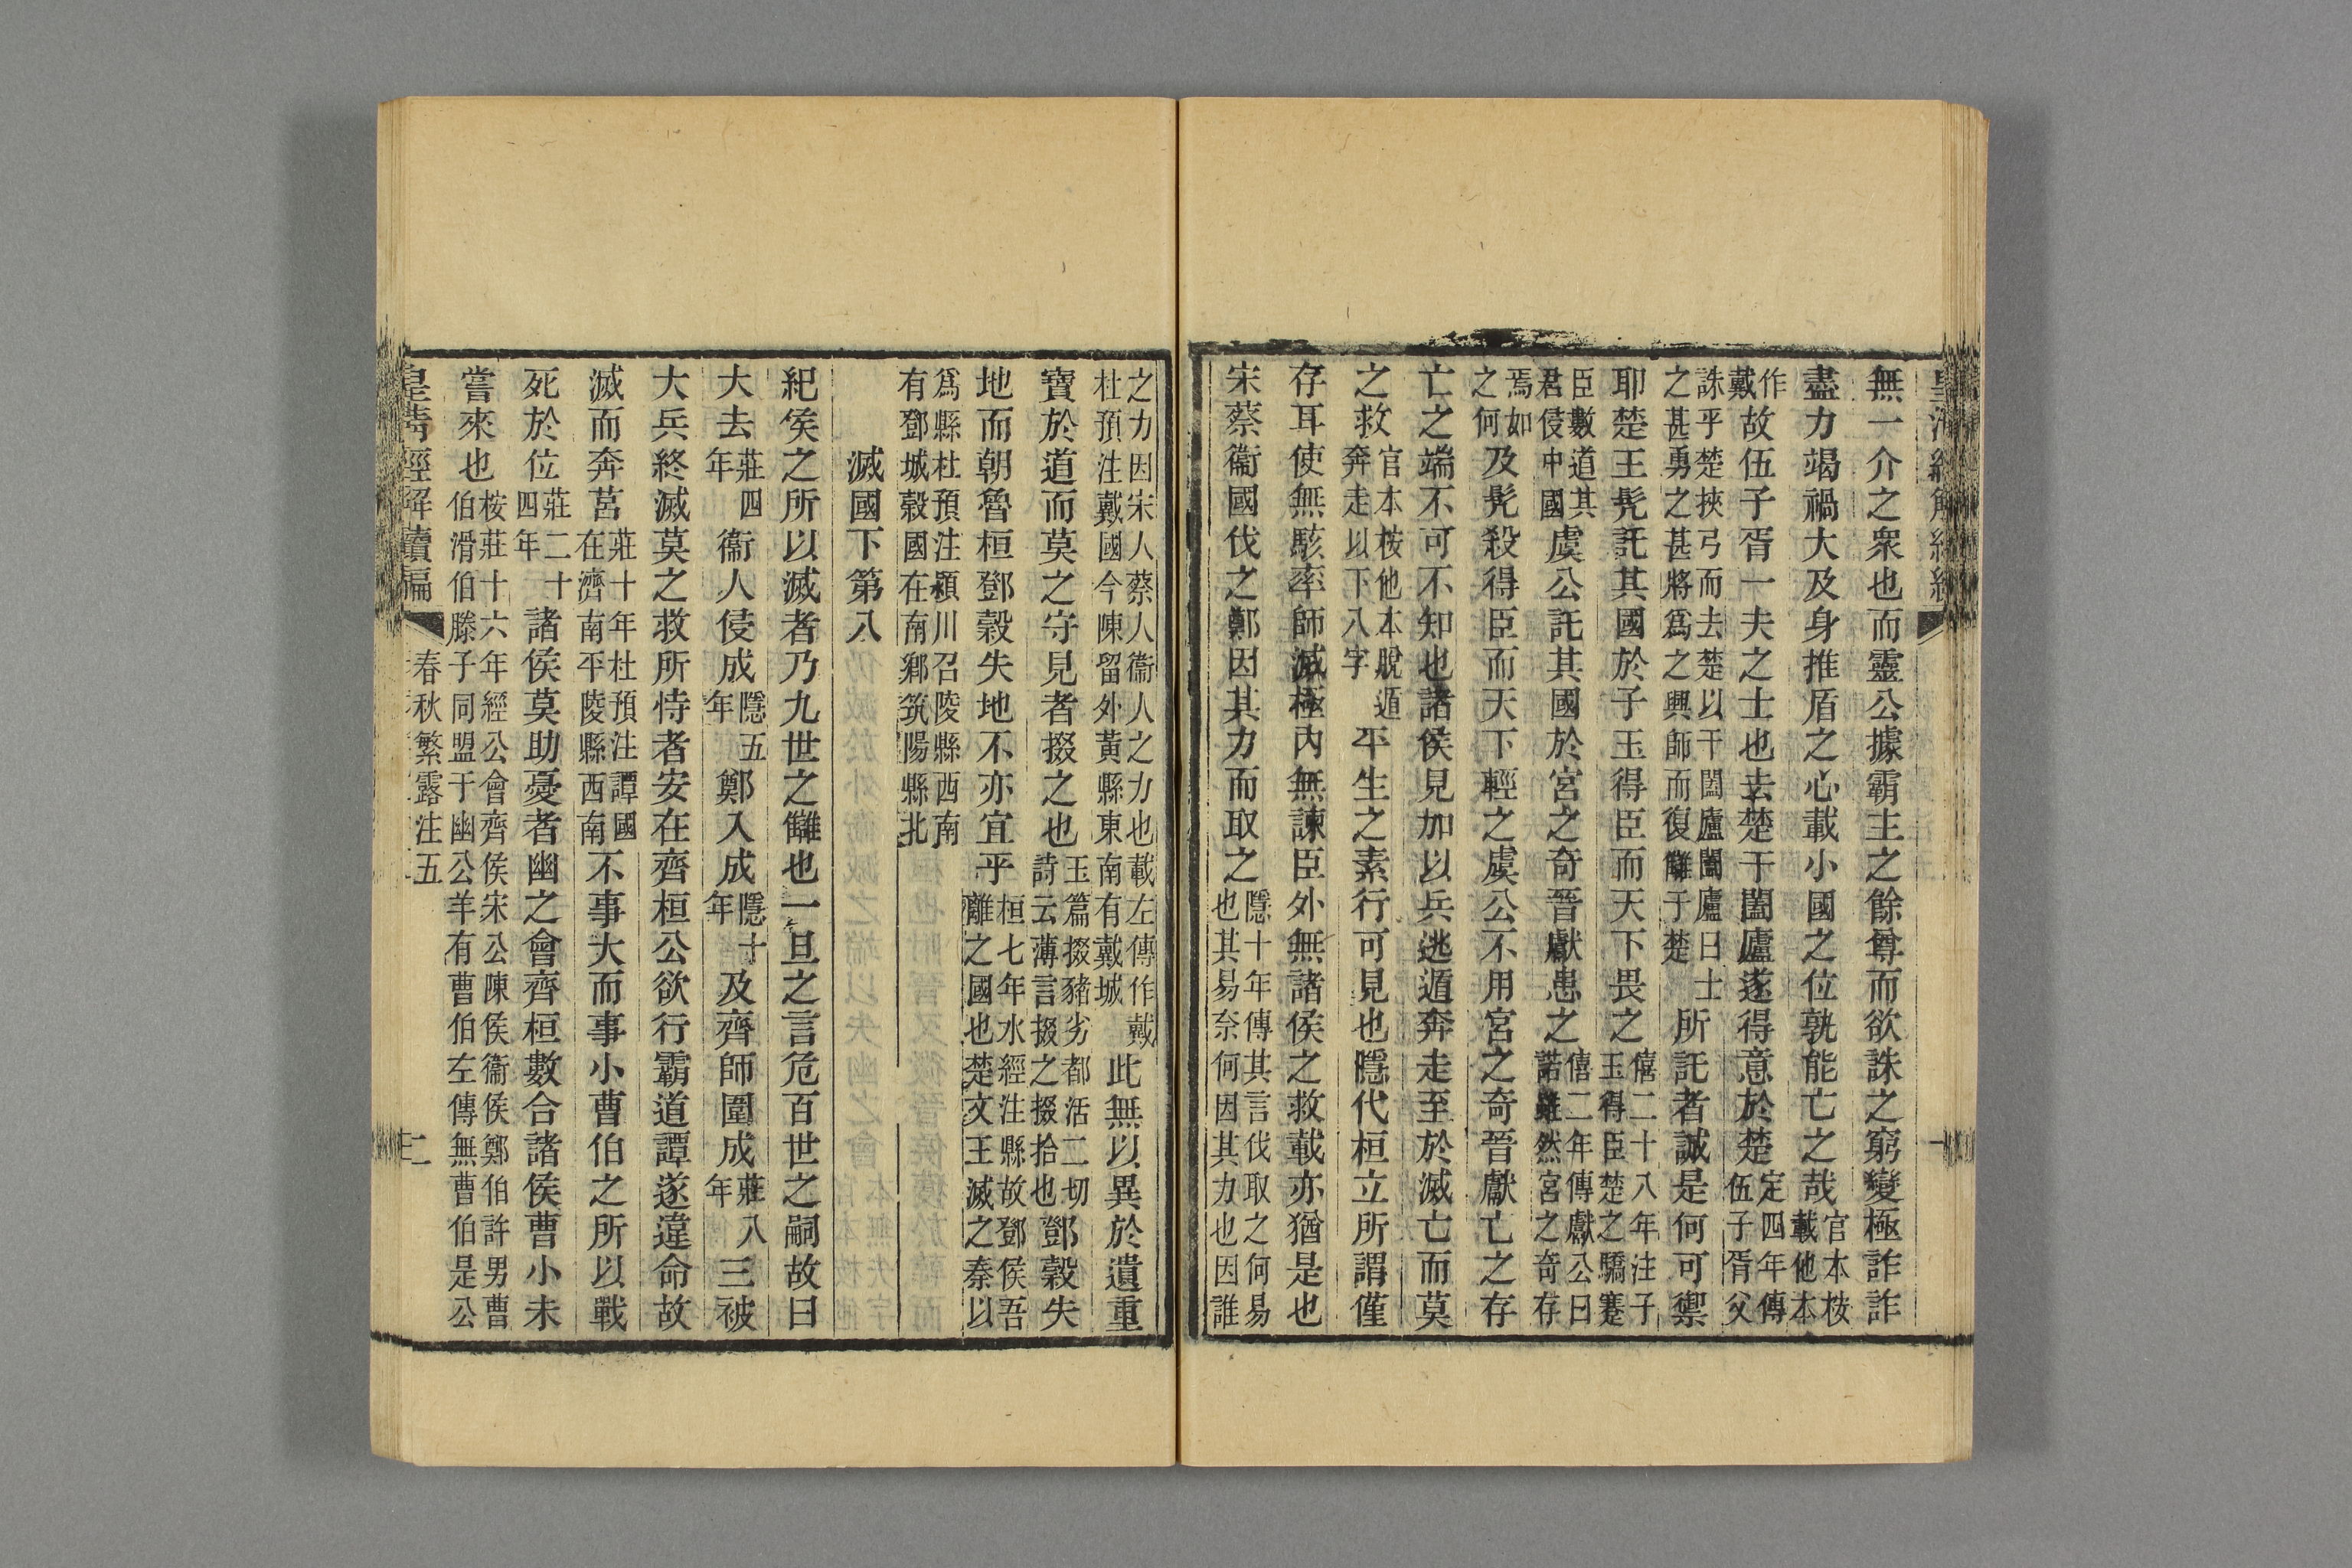 無一介之衆也而靈公據霸主之餘尊而欲誅之窮變極詐詐
盡力竭禍大及身推盾之心載小國之位孰能亡之哉官本桉載他本
作戴故伍子胥一夫之士也去楚干闔廬遂得意於楚定四年傳伍子胥父
誅乎楚挾弓而去楚以干闔廬闔廬曰士之甚勇之甚將爲之興師而復讎于楚所託者誠是何可禦
耶楚王髠託其國於子玉得臣而天下畏之僖二十八年注子玉得臣楚之驕蹇
臣數道其君侵中國虞公託其國於宮之奇晉獻患之僖二年傳獻公曰諾雖然宮之奇存
焉如之何及髠殺得臣而天下輕之虞公不用宮之奇晉獻亡之存
亡之端不可不知也諸侯見加以兵逃遁奔走至於滅亡而莫
之救官本桉他本脫遁奔走以下八字平生之素行可見也隱代桓立所謂僅
存耳使無駭率師滅極內無諫臣外無諸侯之救載亦猶是也
宋蔡衞國伐之鄭因其力而取之隱十年傳其言伐取之何易也其易奈何因其力也因誰
之力因宋人蔡人衞人之力也載左傳作戴杜預注戴國今陳留外黃縣東南有戴城此無以異於遺重
寶於道而莫之守見者掇之也玉篇掇豬劣都活二切詩云薄言掇之掇拾也鄧穀失
地而朝魯桓鄧穀失地不亦宜乎桓七年水經注縣故鄧侯吾離之國也楚文王滅之秦以
爲縣杜預注潁川召陵縣西南有鄧城穀國在南鄉筑陽縣北
滅國下第八
紀侯之所以滅者乃九世之讎也一旦之言危百世之嗣故曰
大去莊四年衞人侵成隱五年鄭入成隱十年及齊師圍成莊八年三被
大兵終滅莫之救所恃者安在齊桓公欲行霸道譚遂違命故
滅而奔莒莊十年杜預注譚國在濟南平陵縣西南不事大而事小曹伯之所以戰
死於位莊二十四年諸侯莫助憂者幽之會齊桓數合諸侯曹小未
嘗來也桉莊十六年經公會齊侯宋公陳侯衞侯鄭伯許男曹伯滑伯滕子同盟于幽公羊有曹伯左傳無曹伯是公
皇清經解續編 春秋繁露注五 二